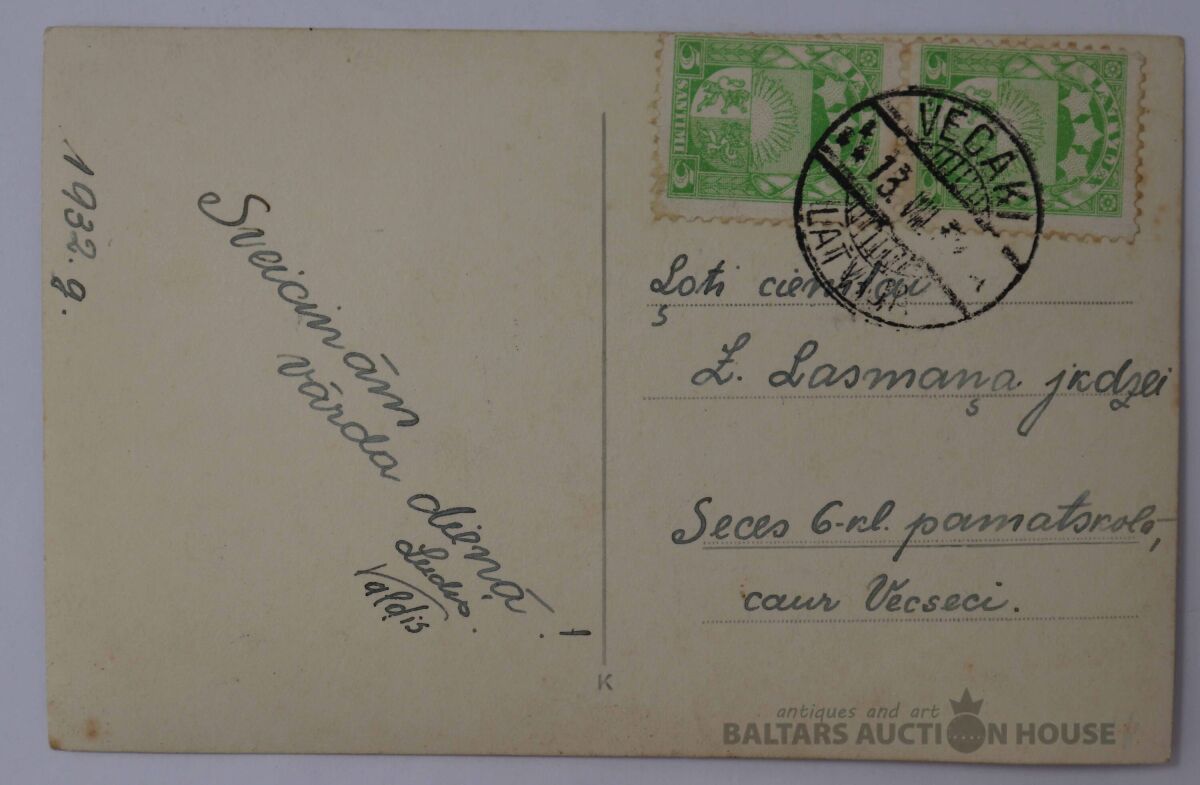 1932. g.
Sveicinām
vārda dienā!
Ludis.
Valdis
5 SANTIMI 5
LATVIJA
5
LATVIJA
VECAĶI
13. VIII
LATVIJA
Ļoti cienītai
Z. Lasmaņa jkdzei
Seces 6-kl. pamatskolā,
caur Vecseci.
K
antiques and art
BALTARS AUCTION HOUSE